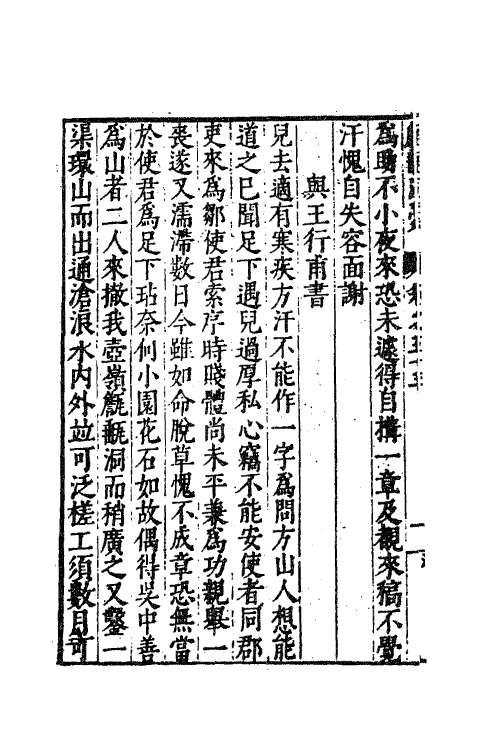 為助不小夜來恐未遽得自搆一章及觀來稿不覺
汗愧自失容面謝
與王行甫書
兒去適有寒疾方汗不能作一字為問方山人想能
道之已聞足下遇兒過厚私心竊不能安使者同郡
吏來為鄒使君索序時賤體尚未平兼為功親舉一
喪遂又濡滯數日今雖如命脫草愧不成章恐無當
於使君為足下玷奈何小園花石如故偶得吳中善
為山者二人來撤我壺嶺甗甑洞而稍廣之又鑿一
渠環山而出通滄浪水內外竝可泛槎工須數月可